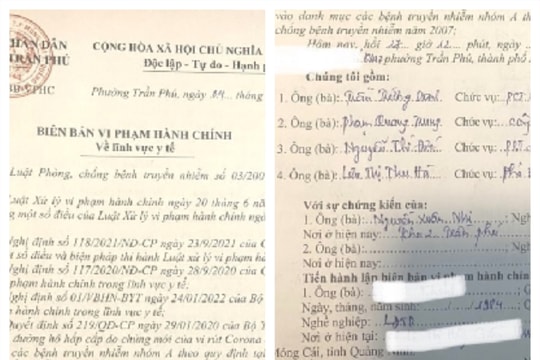 HÂN DÂN
TRẦN PHÚ
CỘNG HÒA XÃ HỘI CHỦ NGHĨA
Độc lập - Tự do - Hạnh p
BB-VPHC
Phường Trần Phú, ngày
BIÊN BẢN VI PHẠM HÀNH CHÍNH
Về lĩnh vực y tế
Luật Phòng, chống bệnh truyền nhiễm số 03/200
Luật Xử lý vi phạm hành chính ngày 20 tháng 6 n
ng một số điều của Luật Xử lý vi phạm hành chính ngà
Nghị định số 118/2021/NĐ-CP ngày 23/9/2021 của C
số điều và biện pháp thi hành Luật xử lý vi phạm hành
Nghị định số 117/2020/NĐ-CP ngày 28/9/2020 c
phạm hành chính trong lĩnh vực y tế.
Nghị định số 01/VBHN-BYT ngày 24/01/2022 của Bộ
hành chính trong lĩnh vực y tế;
Quyết định số 219/QĐ-CP ngày 29/01/2020 Bộ T
đường hô hấp cấp do chủng mới của vi rút Corona
các bệnh truyền nhiễm nhóm A theo quy định tại
vào danh mục các bệnh truyền nhiễm nhóm A theo
chống bệnh truyền nhiễm năm 2007;
Hôm nay, hồi giờ 12 phút, ngày
phường Trần Phú, thành phố
Chúng tôi gồm:
1. Ông (bà): Chức vụ: PCT
2. Ông (bà): Phạm Quang Trung Chức vụ:
3. Ông (bà): Nguyễn Thị Chức vụ:
4. Ông (bà): Thị Thu Hà Chức vụ: Phó
Với sự chứng kiến của:
1. Ông (bà): Nguyễn Xuân Nhị Ngh
Nơi ở hiện nay: Khu 2 Trần Phú
2. Ông (bà):
Nơi ở hiện nay:
Tiến hành lập biên bản vi phạm hành chín
1. Ông (bà):
Ngày, tháng, năm sinh: 1984
Nghề nghiệp: LĐTD
Nơi ở hiện tại:
Móng Cái, tỉnh Quảng Ninh